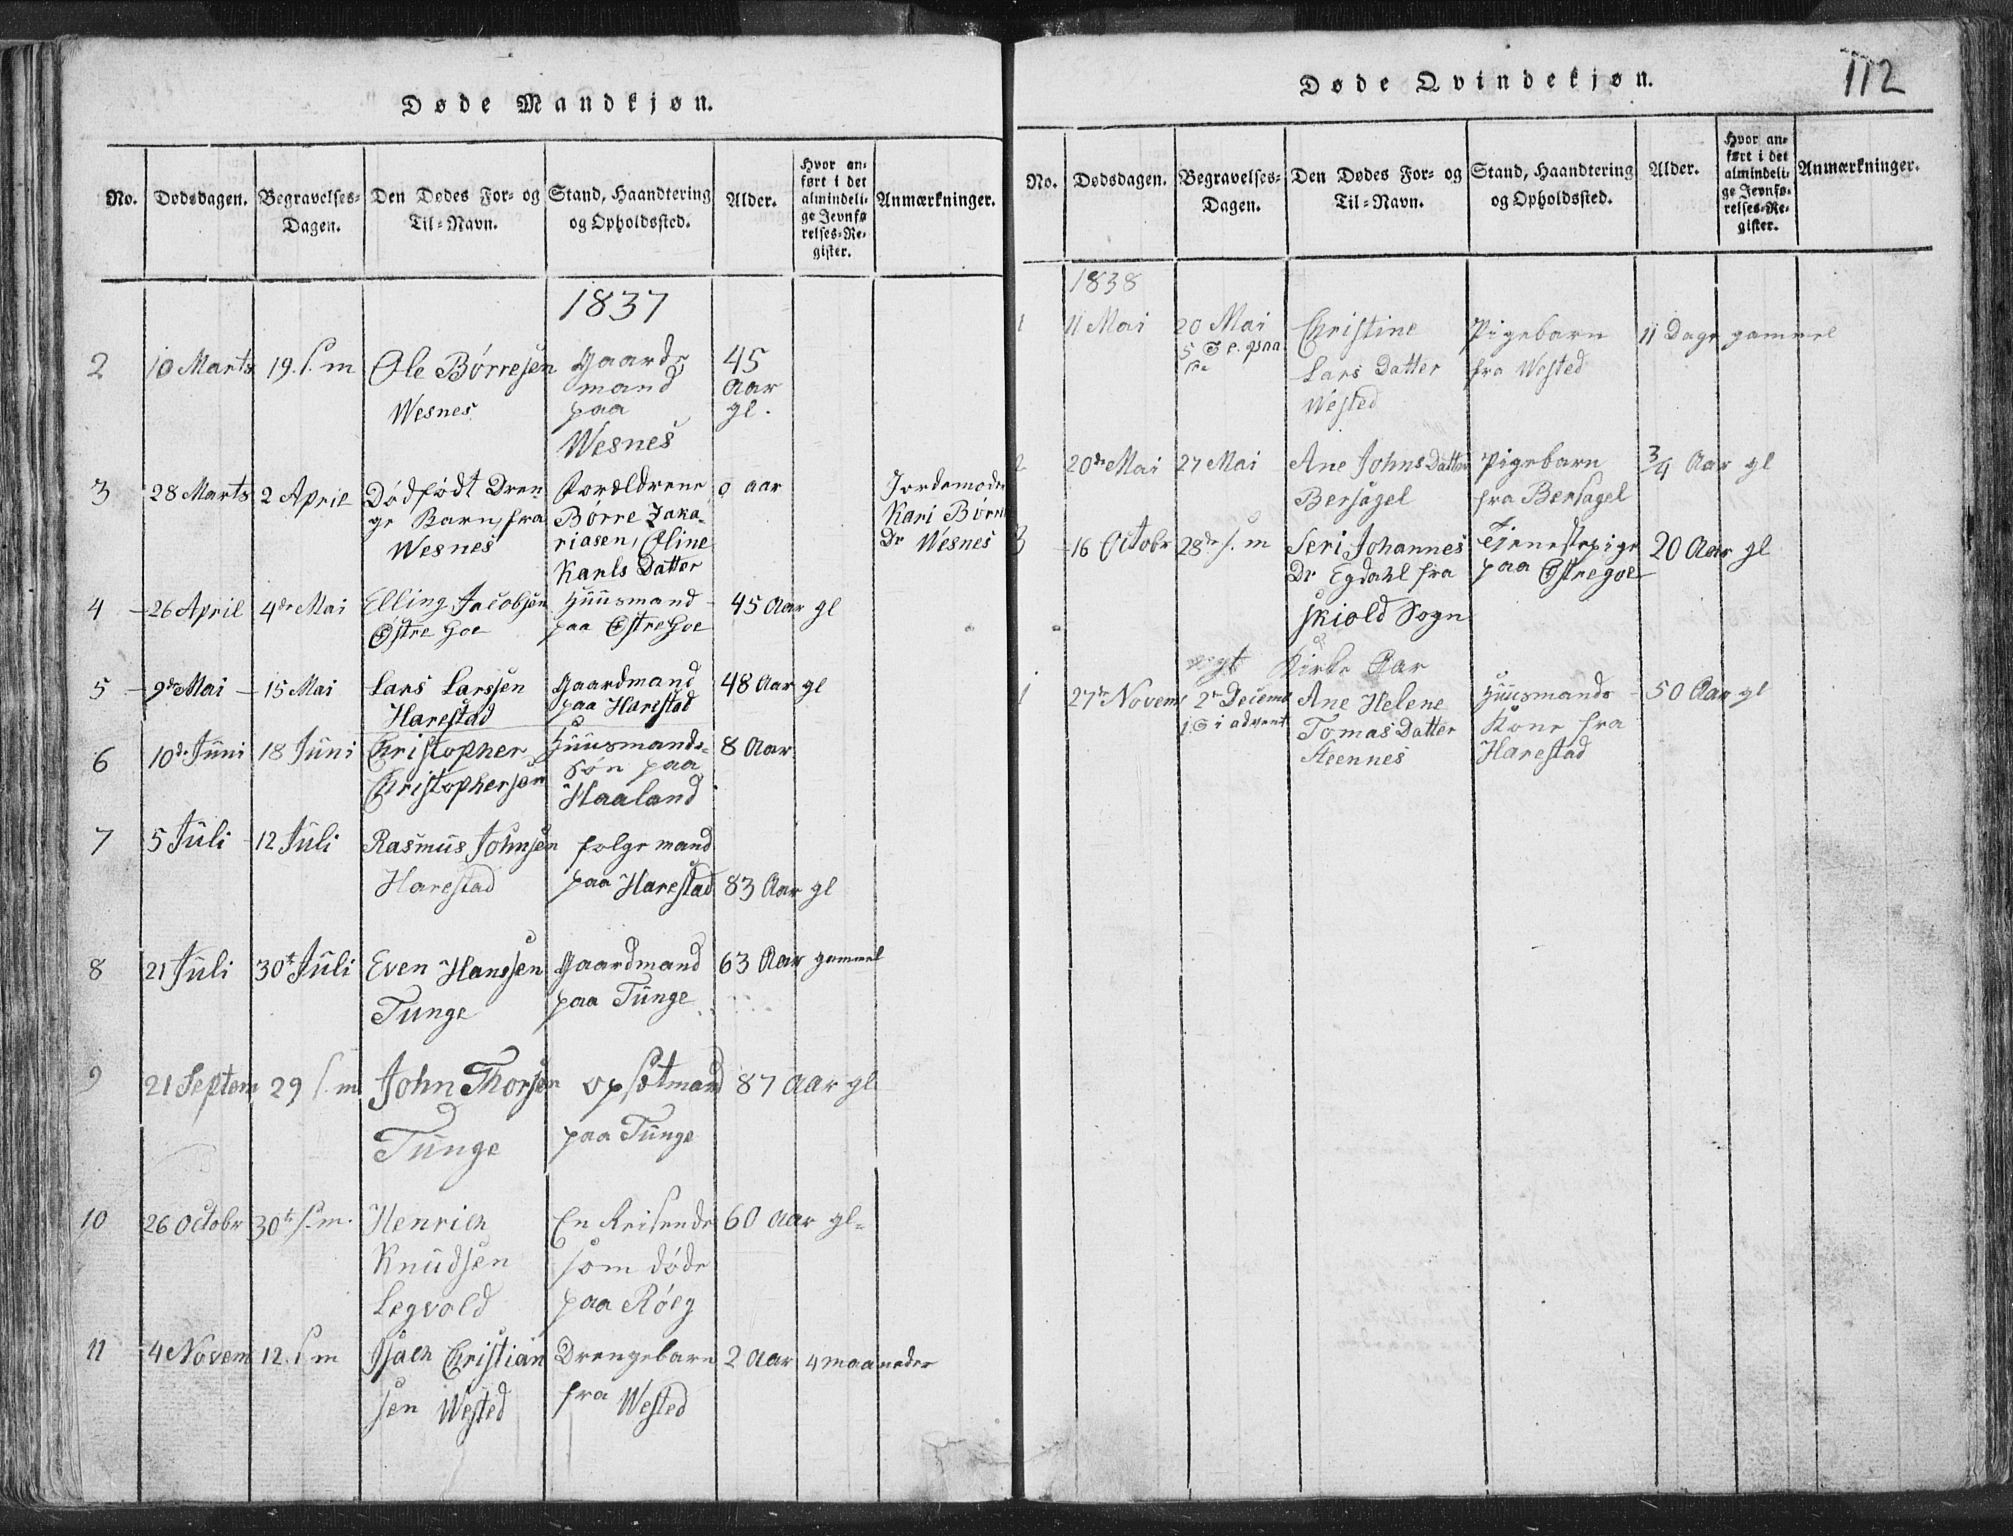 Døde Mandkjøn.
No. Dødsdagen. Begravelses-Dagen. Den Dødes For- og Til-Navn. Stand, Haandtering og Opholdssted. Alder. Hvor anført i det almindelige Jevnførelses-Register. Anmærkninger.
1837
2 10 Marts 19. s. m Ole Børresen Gaards 45
mand Aar
Wesnes paa gl.
Wesnes
3 28 Marts 2 April Dødfødt Dren Forældrene 0 aar Jordemoder
ge Barn, fra Børre Zaka- Kari Børre
Wesnes riasen, Eline Dr Wesnes
Karls Datter
4 26 April 4de Mai Elling Jacobsen Huusmand 45 Aar gl
Østre Goe paa Østre Goe
5 9de Mai 15 Mai Lars Larssen Gaardmand 48 Aar gl
Harestad paa Harestad
6 10de Juni 18 Juni Christopher Huusmands- 8 Aar
Christophersen Søn paa
Haaland
7 5 Juli 12 Juli Rasmus Johnsen folge mand
Harestad paa Harestad 83 Aar gl
8 21 Juli 30te Juli Even Hanssen Gaardmand 63 Aar gammel
Tunge paa Tunge
9 21 Septem 29 s. m John Thorsen opsætmand 87 Aar gl
Tunge paa Tunge
10 26 Octobr 30te s. m. Henrich En Reisende 60 Aar gl-
Knudsen som døde
Legvold paa Røeg
11 4 Novem 12. s m Isach Christian Drengebarn 2 Aar 4 maaneder
sen Wested fra Wested
Døde Qvindekjøn.
112
No. Dødsdagen. Begravelses-Dagen. Den Dødes For- og Til-Navn. Stand, Haandtering og Opholdssted. Alder. Hvor anført i det almindelige Jevnførelses-Register. Anmærkninger.
1838
1 11 Mai 20 Mai Christine Pigebarn 11 Dage gammel
5 S e. paa Lars Datter fra Wested
Wested
2 20de Mai 27 Mai Ane Johns Datter Pigebarn 3/4 Aar gl
Bersagel fra Bersagel
3 16 Octobr 28de s. m Seri Johannes Tjenestepige 20 Aar gl
Dr Egdahl fra paa Østregoe
Skiold Sogn
nyt Kirke Aar
1 27de Novem 2de Decemb Ane Helene Huusmands 50 Aar gl
1 S i advent Tomas Datter Kone fra
Steennes Harestad